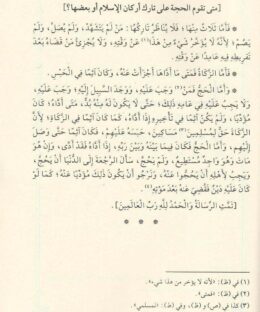 [متى تقوم الحجة على تارك أركان الإسلام أو بعضها؟]
* فَأَمَّا ثَلَاثٌ مِنْهَا: فَلَا يُنَاظَرُ تَارِكُهَا: مَنْ لَمْ يَتَشَهَّدْ، وَلَمْ يُصَلِّ، وَلَمْ
يَصُمْ؛ لِأَنَّهُ لَا يُؤَخَّرُ شَيْءٌ مِنْ هَذَا(١) عَنْ وَقْتِهِ، وَلَا يُجْزِئُ مَنْ قَضَاهُ بَعْدَ
تَفْرِيطِهِ فِيهِ عَامِدًا عَنْ وَقْتِهِ.
* فَأَمَّا الزَّكَاةُ فَمَتَى مَا أَدَّاهَا أَجْزَأَتْ عَنْهُ، وَكَانَ آثِمًا فِي الْحَبْسِ.
* وَأَمَّا الْحَجُّ فَمَنْ(٢) وَجَبَ عَلَيْهِ، وَوَجَدَ السَّبِيلَ إِلَيْهِ؛ وَجَبَ عَلَيْهِ،
وَلَا يَجِبُ عَلَيْهِ فِي عَامِهِ ذَلِكَ حَتَّى لَا يَكُونَ لَهُ مِنْهُ بُدٌّ، مَتَى أَدَّاهُ كَانَ
مُؤَدِّيًا، وَلَمْ يَكُنْ آثِمًا فِي تَأْخِيرِهِ إِذَا أَدَّاهُ، كَمَا كَانَ آثِمًا فِي الزَّكَاةِ؛ لِأَنَّ
الزَّكَاةَ حَقٌّ لِمُسْلِمِينَ(٣) مَسَاكِينَ، حَبَسَهُ عَلَيْهِمْ، فَكَانَ آثِمًا حَتَّى وَصَلَ
إِلَيْهِمْ، وَأَمَّا الْحَجُّ فَكَانَ فِيمَا بَيْنَهُ وَبَيْنَ رَبِّهِ، إِذَا أَدَّاهُ فَقَدْ أَدَّى، وَإِنْ هُوَ
مَاتَ وَهُوَ وَاجِدٌ مُسْتَطِيعٌ، وَلَمْ يَحُجَّ، سَأَلَ الرَّجْعَةَ إِلَى الدُّنْيَا أَنْ يَحُجَّ،
وَيَجِبُ لِأَهْلِهِ أَنْ يَحُجُّوا عَنْهُ، وَنَرْجُو أَنْ يَكُونَ ذَلِكَ مُؤَدِّيًا عَنْهُ؛ كَمَا لَوْ
كَانَ عَلَيْهِ دَيْنٌ فَقُضِيَ عَنْهُ بَعْدَ مَوْتِهِ(٤).
[تَمَّتِ الرِّسَالَةُ وَالْحَمْدُ لِلَّهِ رَبِّ الْعَالَمِينَ].
* * *
(١) في (ظ): «لأنه لا يؤخر من هذا شيء».
(٢) في (ظ): «فمتى».
(٣) كذا في (ص) و(ظ)، وفي (ط): «المسلمي».